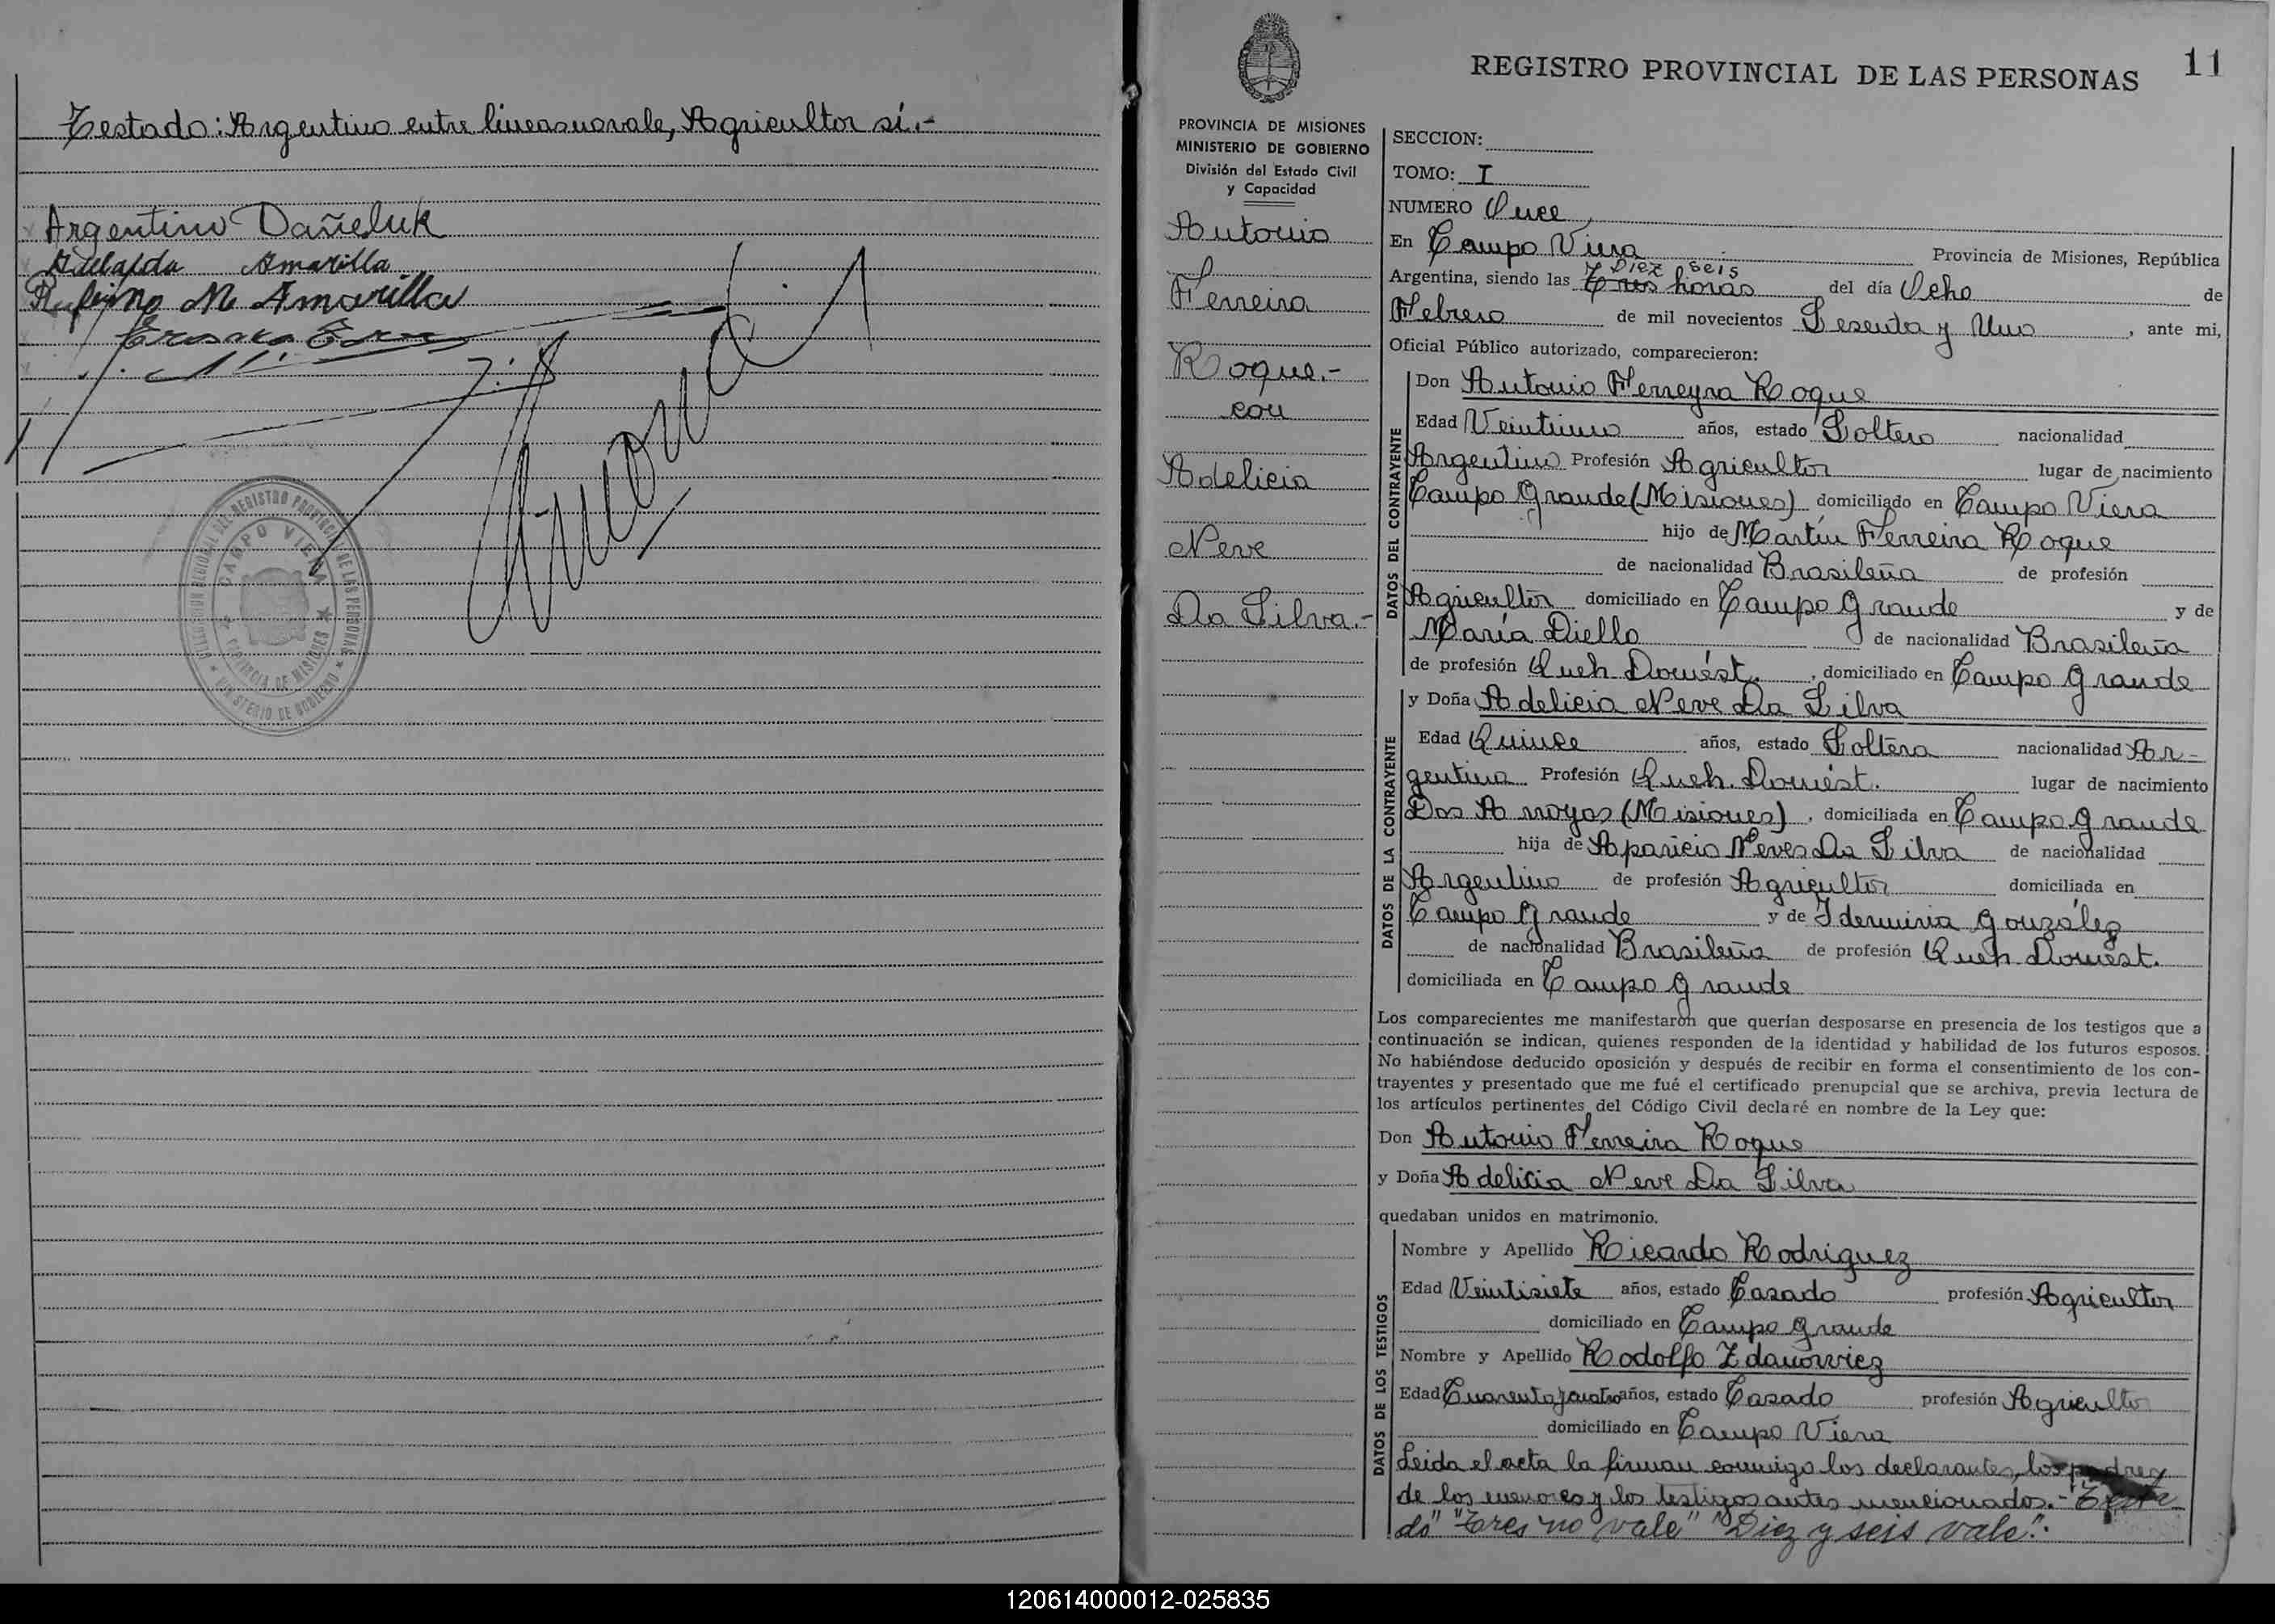 Testado: Argentino entre lineas no vale, Agricultor sí.-
Argentino Dañeluk
Adelaida Amarilla
Rufino M Amarilla
DELEGACION REGIONAL DEL REGISTRO PROVINCIAL DE LAS PERSONAS
CAMPO VIERA
PROVINCIA DE MISIONES
MINISTERIO DE GOBIERNO
11
REGISTRO PROVINCIAL DE LAS PERSONAS
PROVINCIA DE MISIONES
MINISTERIO DE GOBIERNO
División del Estado Civil
y Capacidad
Antonio
Ferreira
Roque.-
con
Adelicia
Neve
Da Silva.-
SECCION:
TOMO: I
NUMERO Once
En Campo Viera Provincia de Misiones, República
Diez y seis
Argentina, siendo las Tres horas del día Ocho de
Febrero de mil novecientos Sesenta y Uno, ante mi,
Oficial Público autorizado, comparecieron:
DATOS DEL CONTRAYENTE
Don Antonio Ferreyra Roque
Edad Veintiuno años, estado Soltero nacionalidad
Argentino Profesión Agricultor lugar de nacimiento
Campo Grande (Misiones) domiciliado en Campo Viera
hijo de Martín Ferreira Roque
de nacionalidad Brasileña de profesión
Agricultor domiciliado en Campo Grande y de
María Diello de nacionalidad Brasileña
de profesión Queh Domést., domiciliado en Campo Grande
DATOS DE LA CONTRAYENTE
y Doña Adelicia Neve Da Silva
Edad Quince años, estado Soltera nacionalidad Ar-
gentina Profesión Queh. Domést. lugar de nacimiento
Dos Arroyos (Misiones), domiciliada en Campo Grande
hija de Aparicio Neves Da Silva de nacionalidad
Argentino de profesión Agricultor domiciliada en
Campo Grande y de Iderminia González
de nacionalidad Brasileña de profesión Queh Domést.
domiciliada en Campo Grande
Los comparecientes me manifestaron que querían desposarse en presencia de los testigos que a
continuación se indican, quienes responden de la identidad y habilidad de los futuros esposos.
No habiéndose deducido oposición y después de recibir en forma el consentimiento de los con-
trayentes y presentado que me fué el certificado prenupcial que se archiva, previa lectura de
los artículos pertinentes del Código Civil declaré en nombre de la Ley que:
Don Antonio Ferreira Roque
y Doña Adelicia Neve Da Silva
quedaban unidos en matrimonio.
DATOS DE LOS TESTIGOS
Nombre y Apellido Ricardo Rodriguez
Edad Veintisiete años, estado Casado profesión Agricultor
domiciliado en Campo Grande
Nombre y Apellido Rodolfo Zdanowicz
Edad Cuarenta y cuatro años, estado Casado profesión Agricultor
domiciliado en Campo Viera
Leida el acta la firman conmigo los declarantes, los padres
de los menores y los testigos antes mencionados.- Testa
do" "Tres no vale" "Diez y seis vale".
120614000012-025835